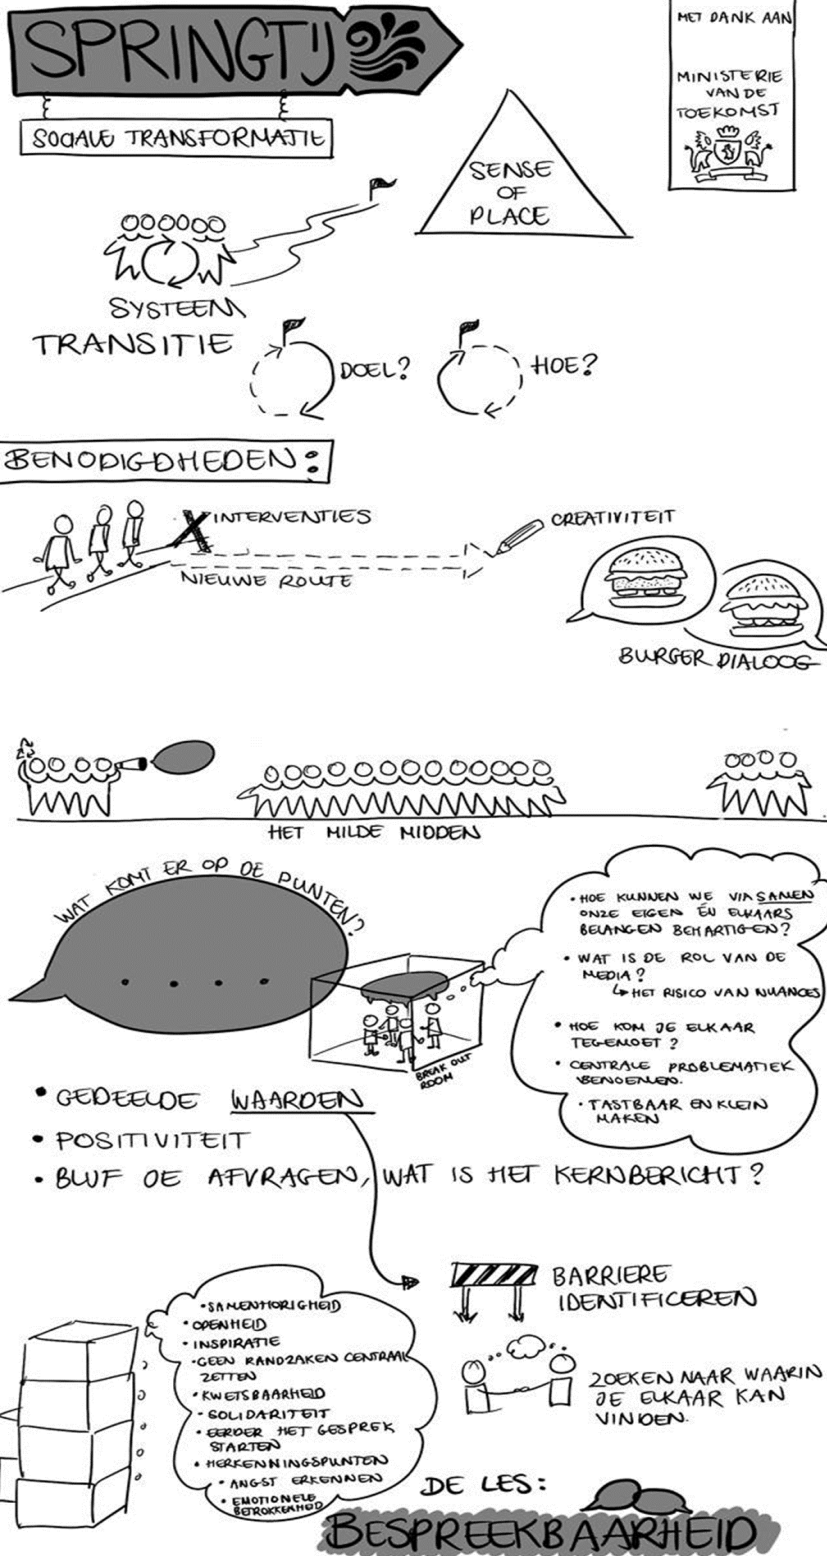 SPRINGTIJ
SOCIALE TRANSFORMATIE
MET DANK AAN
MINISTERIE
VAN DE
TOEKOMST
SENSE
OF
PLACE
SYSTEEM
TRANSITIE
DOEL?
HOE?
BENODIGDHEDEN:
INTERVENTIES
NIEUWE ROUTE
CREATIVITEIT
BURGER DIALOOG
HET MILDE MIDDEN
WAT KOMT ER OP DE PUNTEN?
. . . .
BREAK OUT
ROOM
• HOE KUNNEN WE VIA SAMEN
ONZE EIGEN ÉN ELKAARS
BELANGEN BEHARTIGEN?
• WAT IS DE ROL VAN DE
MEDIA?
↳ HET RISICO VAN NUANCES
• HOE KOM JE ELKAAR
TEGEMOET?
• CENTRALE PROBLEMATIEK
BENOEMEN.
• TASTBAAR EN KLEIN
MAKEN
• GEDEELDE WAARDEN
• POSITIVITEIT
• BLIJF JE AFVRAGEN, WAT IS HET KERNBERICHT?
BARRIERE
IDENTIFICEREN
ZOEKEN NAAR WAARIN
JE ELKAAR KAN
VINDEN.
• SAMENHORIGHEID
• OPENHEID
• INSPIRATIE
• GEEN RANDZAKEN CENTRAAL
ZETTEN
• KWETSBAARHEID
• SOLIDARITEIT
• EERDER HET GESPREK
STARTEN
• HERKENNINGSPUNTEN
• ANGST ERKENNEN
• EMOTIONELE
BETROKKENHEID
DE LES:
BESPREEKBAARHEID